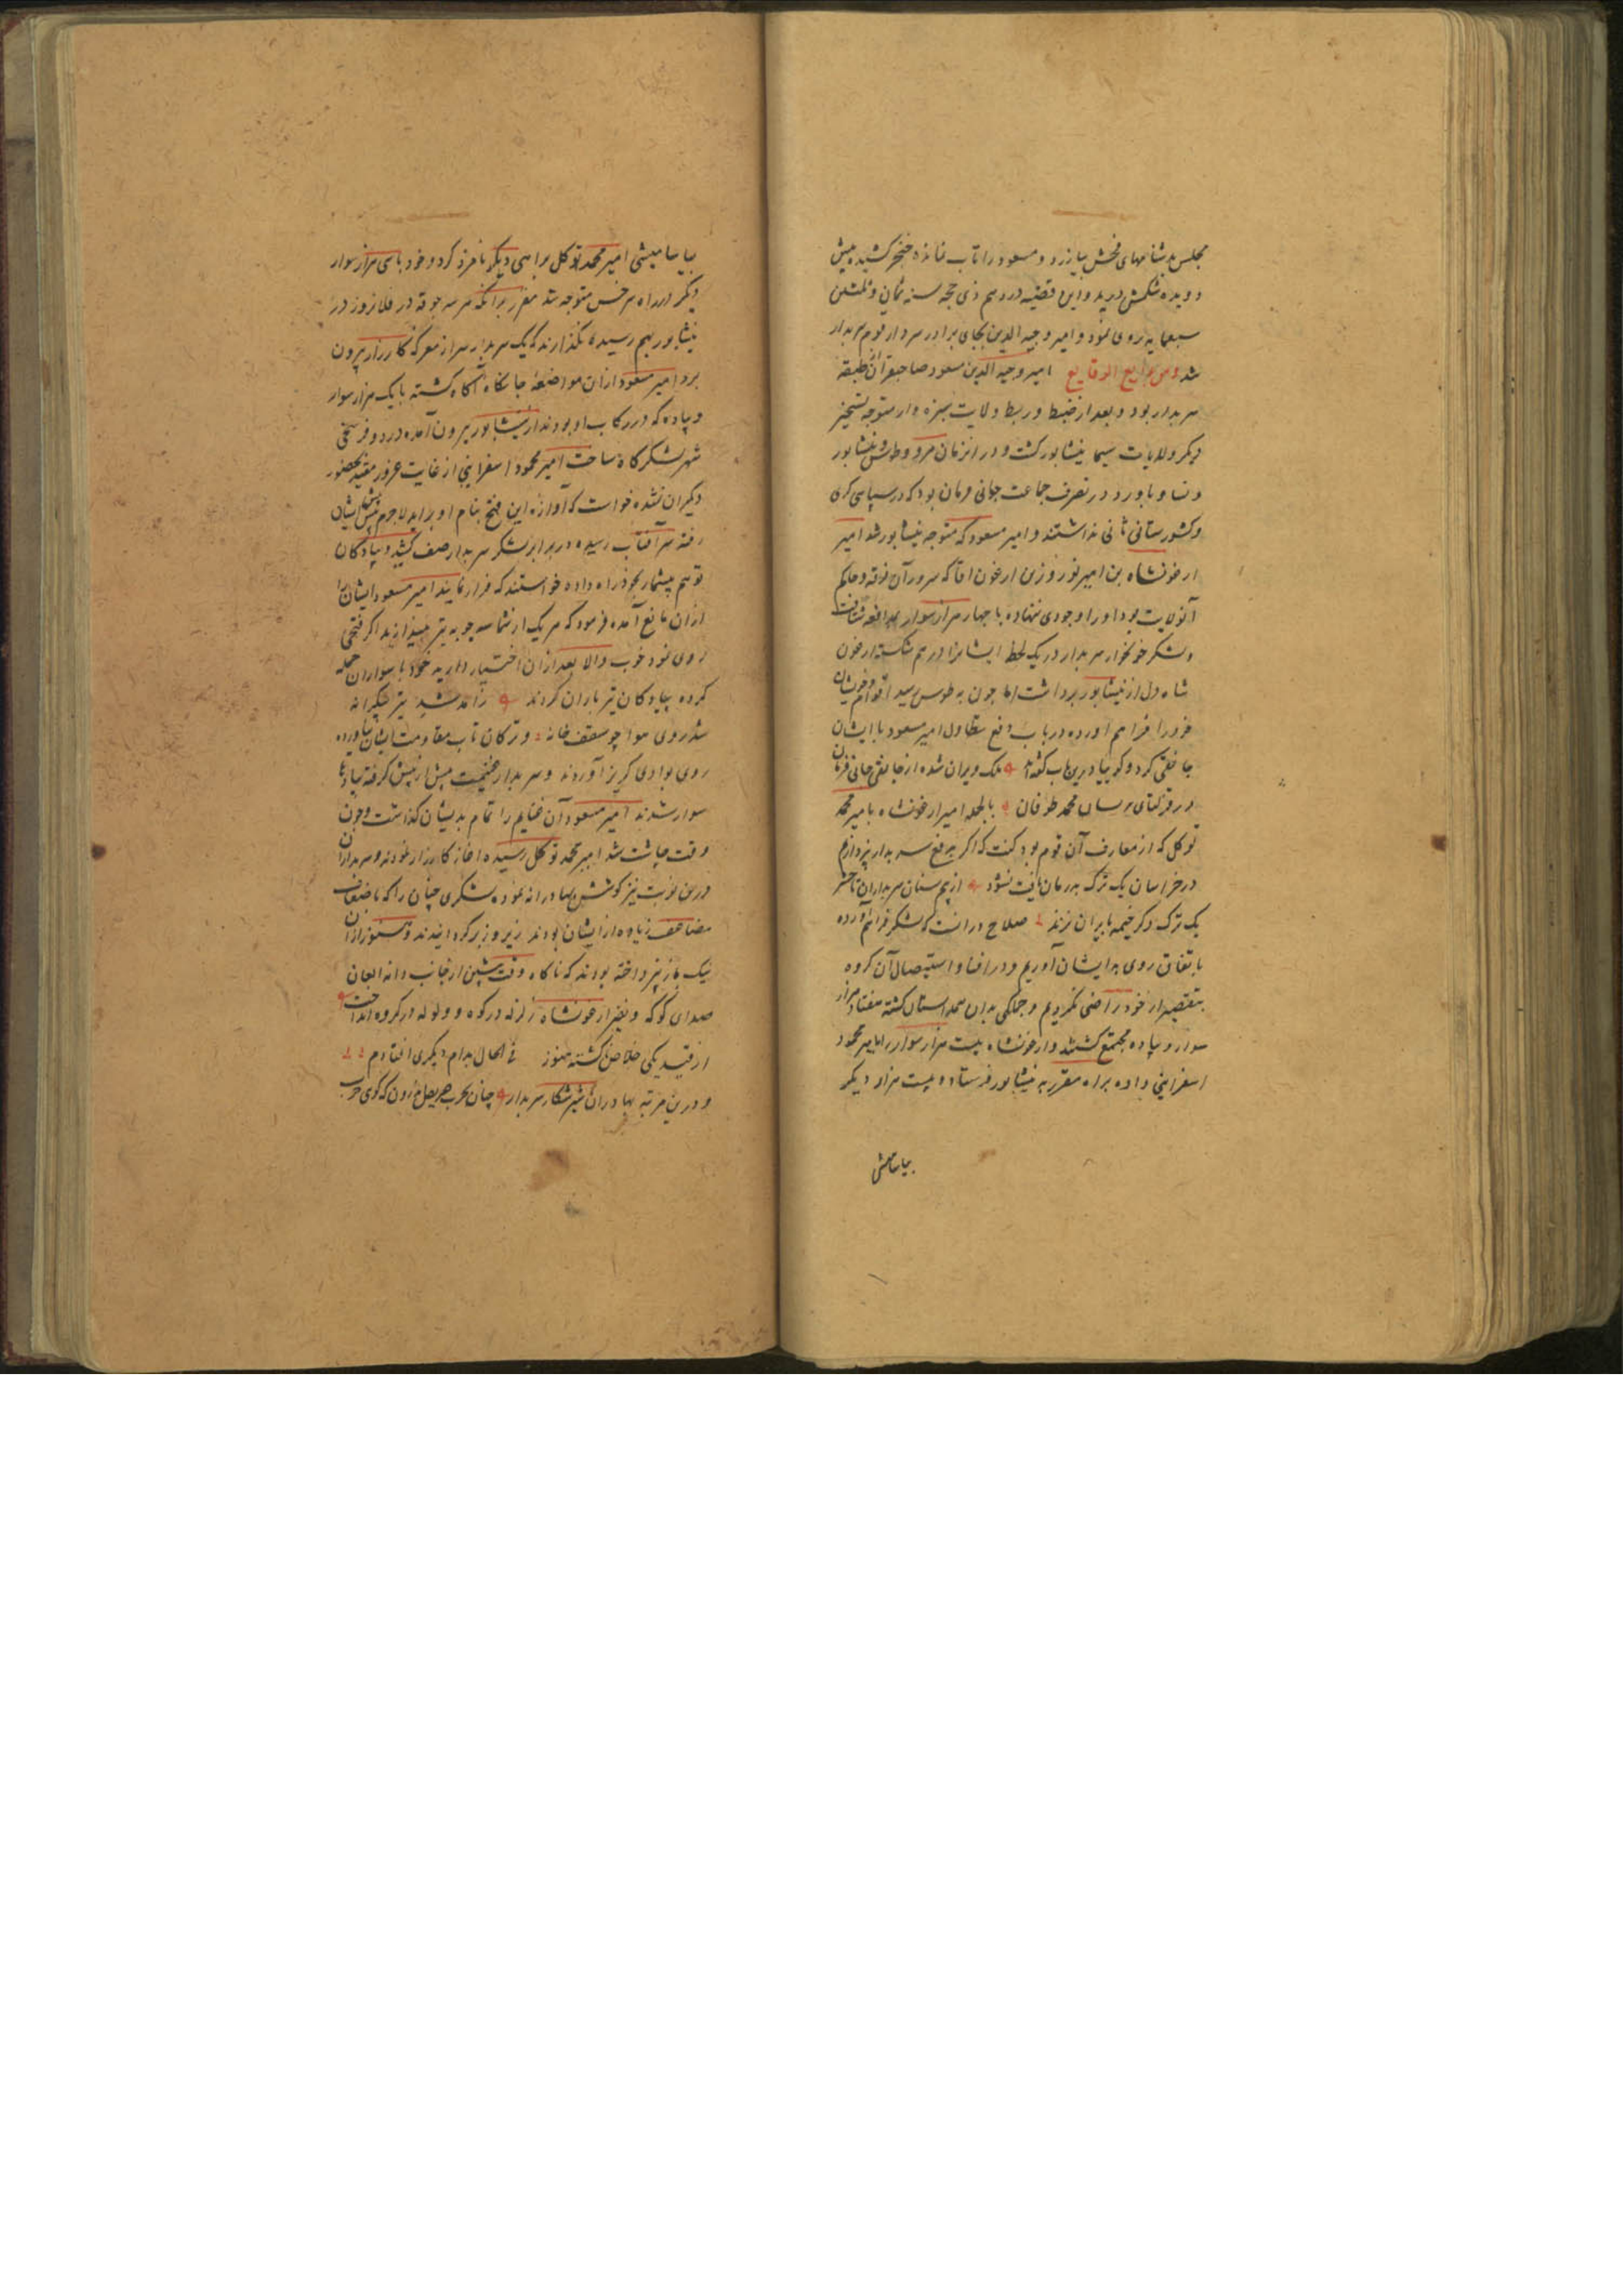 مجلس بدشنامهای فحش بیازرد و مسعود را تاب نمانده خنجر کشیده پیش
دویده شکمش درید و این قضیه در دهم ذی حجه سنه ثمان و ثلثین
سبعمایه روی نمود و امیر وجیه الدین بجای برادر سردار قوم سربدار
شد و من بدایع الوقایع امیر وجیه الدین مسعود صاحبقران طبقه
سربدار بود و بعد از ضبط و ربط ولایت سبزه وار متوجه تسخیر
دیکر ولایات سیما نیشابور کشت و در انزمان مرو و طوس و نیشابور
و نسا و باورد در تصرف جماعت جانی قربان بود که در سپاسی کری
و کشورستانی ثانی نداشتند و امیر مسعود که متوجه نیشابور شد امیر
ارغونشاه بن امیر نوروز بن ارغون اقا که سرور آن فرقه و حاکم
آنولایت بود او را وجودی ننهاده با چهار هزار سوار بمدافعه شتافت
و لشکر خونخوار سربدار در یک لحظه ایشانرا درهم شکسته ارغون
شاه دل از نیشابور برداشت اما چون به طوس رسید اقوام و خویشان
خود را فراهم اورده در باب دفع تطاول امیر مسعود با ایشان
جانقی کرد و کوییا درین باب کفته اند ملک ویران شده از جانقی جانی قربان
در قزلتای پریسان محمد طوفان بالجمله امیر ارغونشاه با میر محمد
توکل که از معارف آن قوم بود کفت که اکر بدفع سربدار نپردازیم
در خراسان یک ترک بدرمان یافت نشود از بیم سنان سربداران تا حشر
یک ترک دکر خیمه بایران نزند صلاح درانست که لشکر فراهم آورده
باتفاق روی بدایشان آوریم و در افنا و استیصال آن کروه
بتقصیر از خود راضی نکردیم و جملکی بدان همداستان کشته هفتاد هزار
سوار و پیاده مجتمع کشتند و ارغونشاه بیست هزار سوار را بامیر محمود
اسفراینی داده براه مقرر به نیشابور فرستاد و بیست هزار دیکر
بیاسامیشی
بیاسامیشی امیر محمد توکل براهی دیکر نامزد کرد و خود باسی هزار سوار
دیکر از راه سرخس متوجه شد مقرر برانکه هر سه جوقه در فلان روز در
نیشابور بهم رسیده نکذارند که یک سربدار سر از معرکه کارزار بیرون
برد امیر مسعود از ان مواضعه جانکاه آکاه کشته با یک هزار سوار
و پیاده که در رکاب او بودند از نیشابور بیرون آمده در دو فرسخی
شهر لشکرکاه ساخت امیر محمود اسفراینی از غایت غرور مقید بحضور
دیکران نشده خواست که آوازه این فتح بنام او براید لاجرم پیش ایشان
رفته سر آفتاب رسیده در برابر لشکر سربدار صف کشید و پیادکان
توهم بیشمار بخود راه داده خواستند که فرار نمایند امیر مسعود ایشان را
از ان مانع آمده فرمود که هر یک از شما سه چوبه تیر بیندازید اکر فتحی
روی نمود خوب والا بعد ازان اختیار دارید خود با سواران حمله
کرده پیادکان تیر باران کردند ز آمد شد تیر بیکرانه
شد روی هوا چو سقف خانه و ترکان تاب مقاومت ایشان نیاورده
روی بوادی کریز آوردند و سربدار غنیمت پیش از پیش کرفته پیادها
سوار شدند امیر مسعود آن غنایم را تمام بدیشان کذاشت و چون
وقت چاشت شد امیر محمد توکل رسیده اغاز کارزار نمودند و سربداران
درین نوبت نیز کوشش بهادرانه نموده لشکری چنان را که باضعاف
مضاعف زیاده از ایشان بودند زیر و زبر کردانیدند و هنوز ازان
نیک باز نپرداخته بودند که ناکاه وقت پیشین از جانب دانه العان
صدای کوکه و نفیر ارغونشاه زلزله در کوه و ولوله در کروه انداخت
از قید یکی خلاص ناکشته هنوز فی الحال بدام دیکری افتادم
و درین مرتبه بهادران شیر شکار سربدار چنان بحرب حریص خوردن که کوی حرب